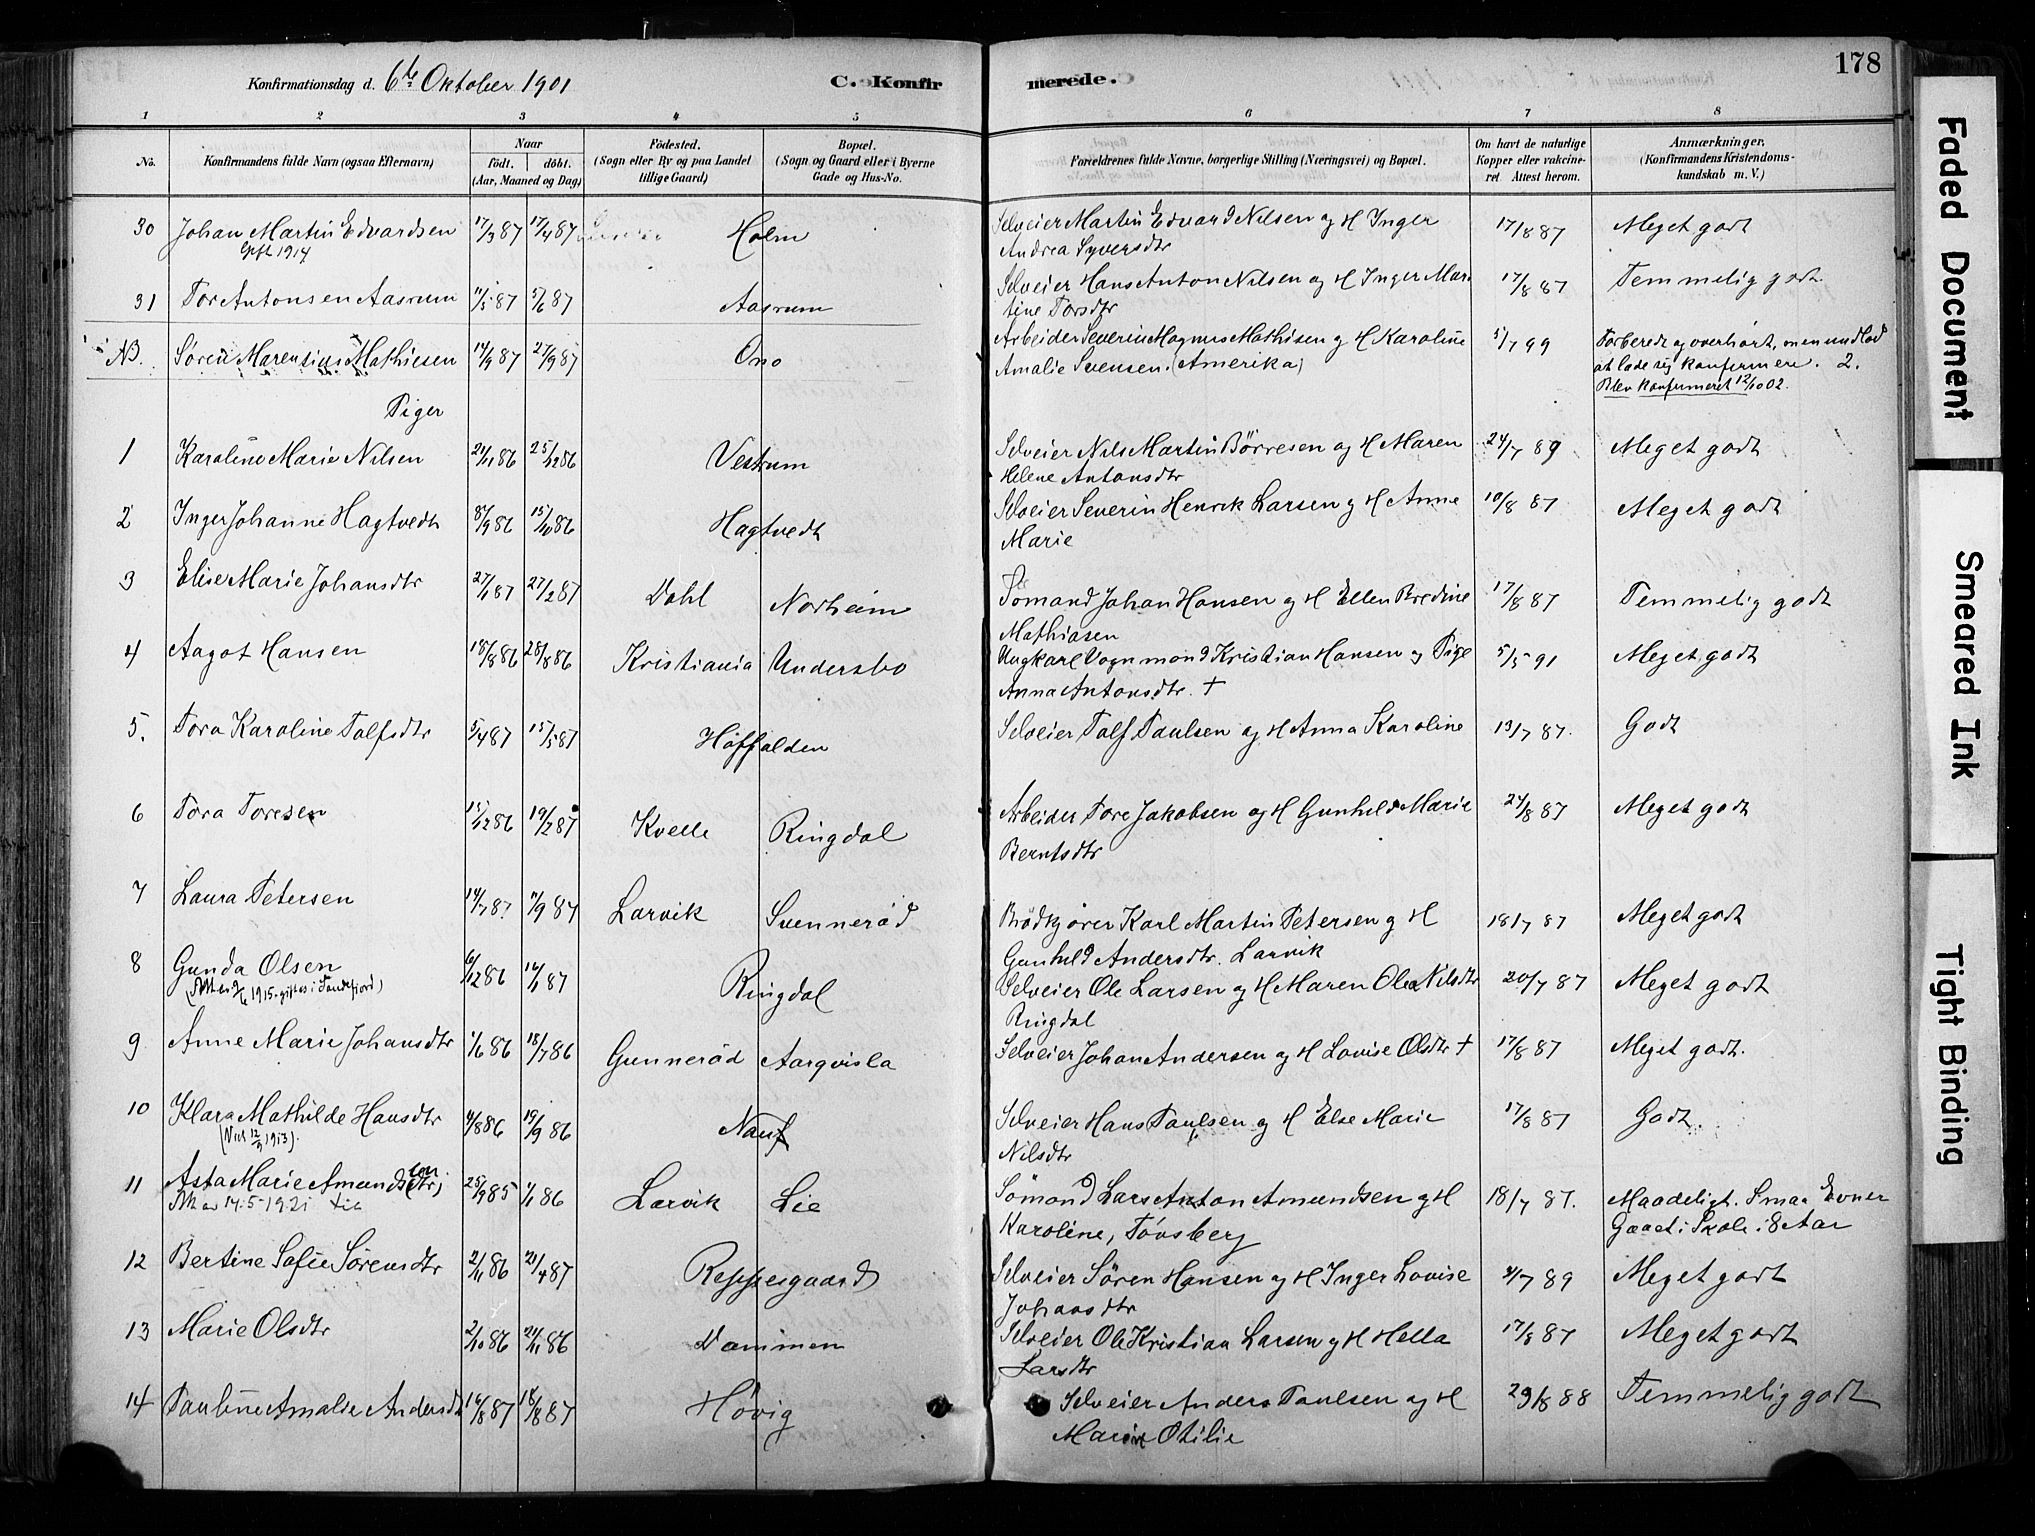 Konfirmationsdag d. 6te Oktober 1901
C. Konfirmerede.
178
1 2 3 4 5 6 7 8
No. Konfirmandens fulde Navn (ogsaa Efternavn) Naar født. døbt. (Aar, Maaned og Dag) Födested. (Sogn eller By og paa Landet tillige Gaard) Bopæl. (Sogn og Gaard eller i Byerne Gade og Hus-No. Forældrenes fulde Navne, borgerlige Stilling (Næringsvei) og Bopæl. Om havt de naturlige Kopper eller vakcineret Attest herom. Anmærkninger, (Konfirmandens Kristendomskundskab m. V.)
30 Johan Martin Edvardsen 17/3 87 17/4 87 Holm Selveier Martin Edvard Nilsen og H Inger 17/8 87 Meget godt
Gift 1914 Andrea Syversdtr
31 Tor Antonsen Aasrum 11/5 87 5/6 87 Aasrum Selveier Hans Anton Nilsen og H Inger Mar 17/8 87 Temmelig godt.
tine Torsdtr
NB. Søren Marensius Mathiesen 14/9 87 27/9 87 Ono Arbeider Severin Magnus Mathisen og H Karoline 5/7 99 Forberedt og overhørt, men undlod
Amalie Svensen. (Amerika) at lade sig konfirmere. 2.
Blev konfirmeret 12/10 02.
Piger
1 Karoline Marie Nilsen 21/11 86 25/12 86 Vestrum Selveier Nils Martin Børresen og H Maren 24/7 89 Meget godt
Helene Antonsdtr
2 Inger Johanne Hagtvedt 8/9 86 15/10 86 Hagtvedt Selveier Severin Henrik Larsen og H Anne 10/8 87 Meget godt
Marie
3 Elise Marie Johansdtr 27/1 87 27/2 87 Dahl Norheim Sømand Johan Hansen og H Ellen Bredine 17/8 87 Temmelig godt
Mathiasen
4 Aagot Hansen 18/8 86 28/8 86 Kristiania Undersbo Ungkarl Vognmand Kristian Hansen og Pige 5/5 91 Meget godt
Anna Antonsdtr. †
5. Tora Karoline Talfsdtr 5/4 87 15/5 87 Høffalden Selveier Talf Paulsen og H Anna Karoline 13/7 87. Godt
6 Tora Toresen 15/12 86 19/2 87 Kvelle Ringdal Arbeider Tore Jakobsen og H Gunhild Marie 24/8 87 Meget godt
Berntsdtr
7 Laura Petersen 14/7 87 11/9 87 Larvik Svennerød Brødkjører Karl Martin Petersen og H 18/7 87 Meget godt
Gunhild Andersdtr. Larvik
8 Gunda Olsen 6/12 86 16/1 87 Ringdal Selveier Ole Larsen og H Maren Olea Nilsdtr 20/7 87 Meget godt
1915. giftes i Sandefjord) Ringdal
9 Anne Marie Johansdtr 1/6 86 18/7 86 Gunnerød Aarqvisla Selveier Johan Andersen og H Lovise Olsdtr † 17/8 87 Meget godt.
10 Klara Mathilde Hansdtr 4/8 86 19/9 86 Nauf Selveier Hans Paulsen og H Else Marie 17/8 87 Godt.
1913). Nilsdtr
11 Asta Marie Amundsdtr 25/9 85 1/1 86 Larvik Lie Sømand Lars Anton Amundsen og H 18/7 87. Maadeligt. Smaa Evner
14-5-1921 Karoline, Tønsberg Gaaet i Skole i 8 Aar
12 Bertine Sofie Sørensdtr 2/11 86 21/4 87 Reppesgaard Selveier Søren Hansen og H Inger Lovise 4/7 89 Meget godt
Johansdtr
13 Marie Olsdtr 2/10 86 21/11 86 Dammen Selveier Ole Kristian Larsen og H Hella 17/8 87 Meget godt
Larsdtr
14 Pauline Amalie Andersdtr 16/8 87 18/8 87 Høvig Selveier Anders Paulsen og H 29/8 88 Temmelig godt
Marie Otilie
Faded Document
Smeared Ink
Tight Binding